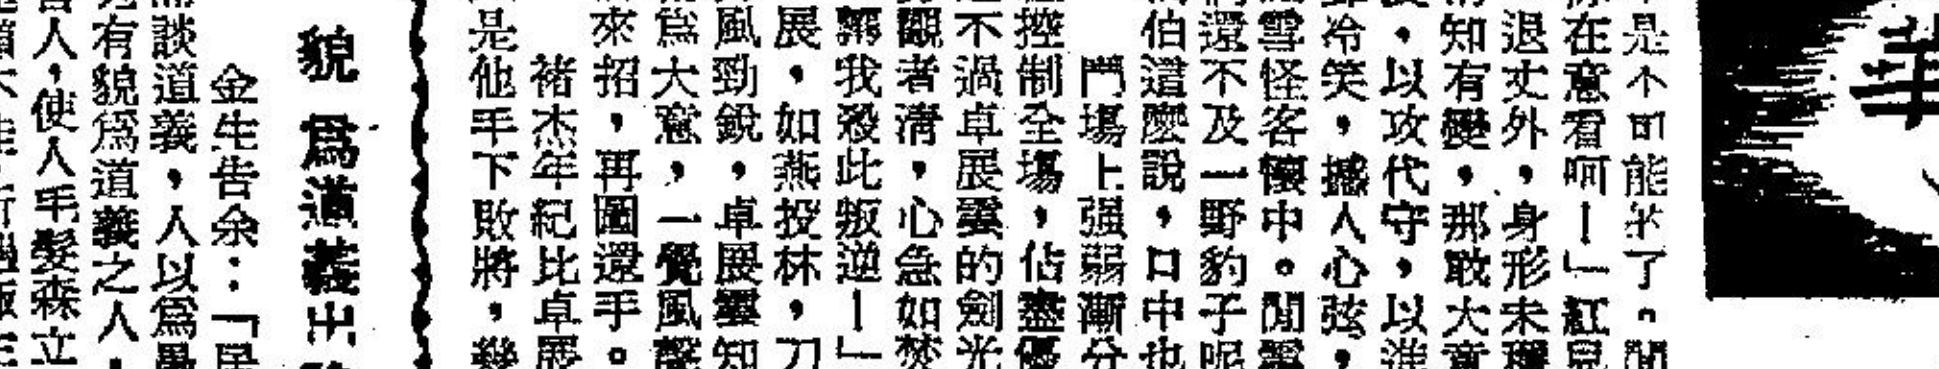 華
是不可能的了。閒
你在意看呵！」紅兒
退丈外，身形未穩
知有變，那敢大意
，以攻代守，以進
冷笑，撼人心弦，
雪怪客懷中。閒雲
還不及一野豹子呢
伯這麼說，口中也
鬥場上强弱漸分
控制全場，佔盡優
不過卓展雲的劍光
觀者清，心急如焚
我殺此叛逆！」
展，如燕投林，刀
風勁銳，卓展雲知
爲大意，一覺風聲
來招，再圖還手。
褚杰年紀比卓展
是他手下敗將，幾
貌爲道義
金生告余：「
談道義，人以爲愚
有貌爲道義之人，
人，使人毛髮森立